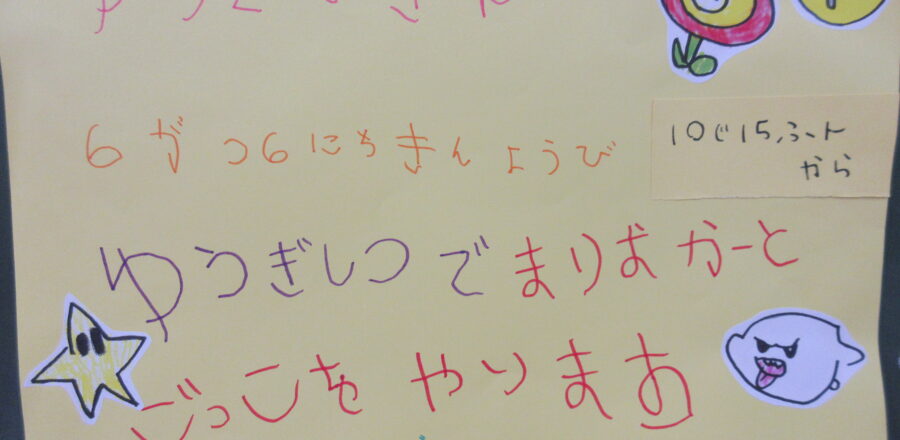 6がつ6にちきんようび
10じ15ふん
から
ゆうぎしつでまりおかーと
ごっこをやります